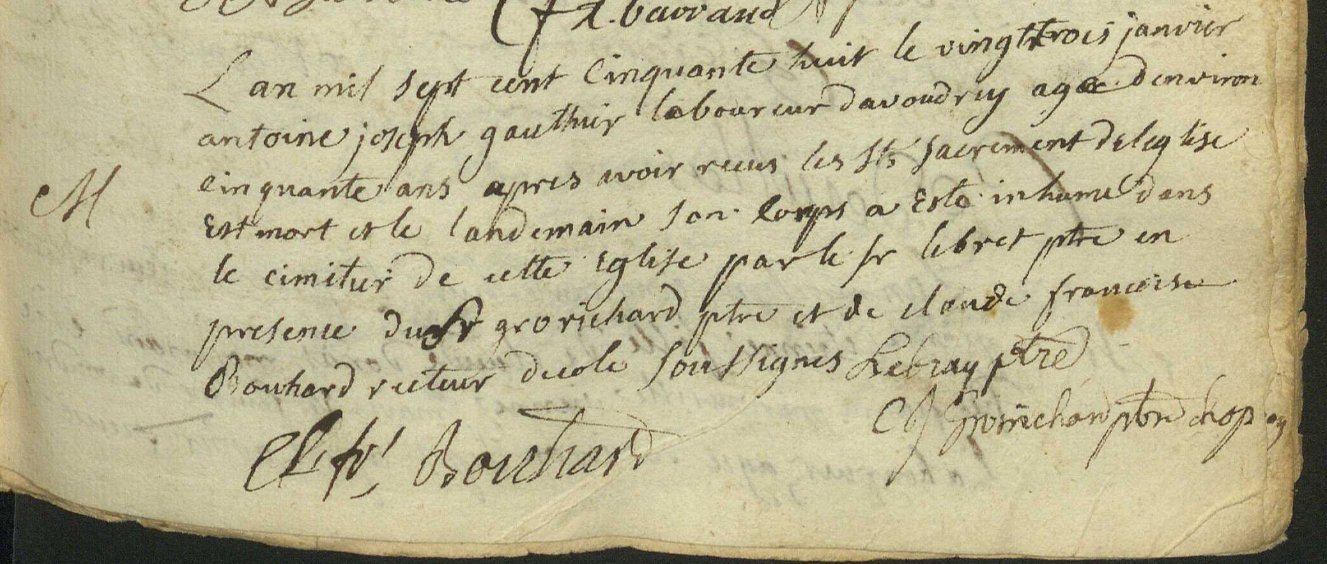 Lan mil sept cent cinquante huit le vingttrois janvier
antoine joseph gauthier laboureur davoudrey agee denviron
cinquante ans apres avoir recus les sts sacrement deleglise
Est mort et le landemain son corps a Esté inhumé dans
le cimitier de cette Eglise par le sr lebret ptre en
presence du sr grorichard ptre et de claude francoise
Bouhard recteur decole soussignes Lebray ptre
M
Cl fr Bouhard
grorichard ptre